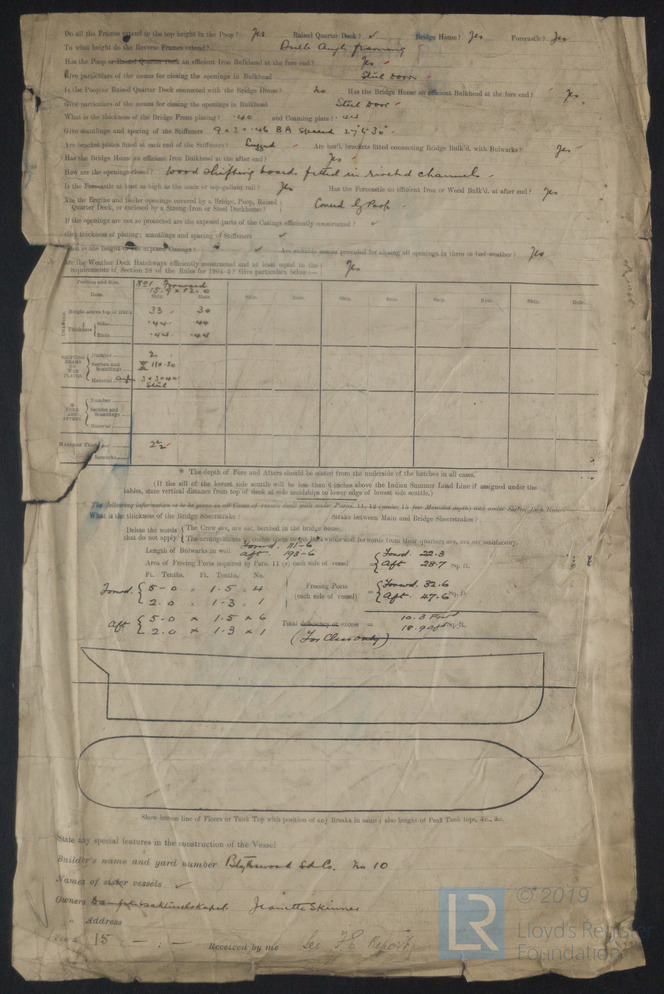 Do all the Frames extend to the top height in the Poop? Yes Raised Quarter Deck? ✓ Bridge House? Yes Forecastle? Yes
To what height do the Reverse Frames extend? Bulb Angle framing
Has the Poop or Raised Quarter Deck an efficient Iron Bulkhead at the fore end? Yes
Give particulars of the means for closing the openings in Bulkhead Steel Doors
Is the Poop or Raised Quarter Deck connected with the Bridge House? No Has the Bridge House an efficient Bulkhead at the fore end? Yes
Give particulars of the means for closing the openings in Bulkhead Steel Door
What is the thickness of the Bridge Front plating? .40 and Coaming plate? .44
Give scantlings and spacing of the Stiffeners 9 x 3 x .46 BA Spaced
Are bracket plates fitted at each end of the Stiffeners? Lugged Are hor'l. brackets fitted connecting Bridge Bulk'd. with Bulwarks? Yes
Has the Bridge House an efficient Iron Bulkhead at the after end? Yes
How are the openings closed? Wood shifting boards fitted in riveted channels.
Is the Forecastle at least as high as the main or top-gallant rail? Yes Has the Forecastle an efficient Iron or Wood Bulk'd. at after end? Yes
Are the Engine and Boiler openings covered by a Bridge, Poop, Raised
Quarter Deck, or enclosed by a Strong Iron or Steel Deckhouse? Covered by Poop
If the openings are not so protected are the exposed parts of the Casings efficiently constructed? ✓
thickness of plating; scantlings and spacing of Stiffeners ✓
is the height of the exposed Casings? ✓ Are suitable means provided for closing all openings in them in bad weather? Yes
Are the Weather Deck Hatchways efficiently constructed and at least equal to the
requirements of Section 28 of the Rules for 1904-5? Give particulars below:— Yes
Position and Size. No 1 Forward
Item. Ship. Rule. Ship. Rule. Ship. Rule. Ship. Rule. Ship. Rule.
Height above top of Deck 33 30
Thickness Sides .44 .44
Ends .44 .44
Number 2
Section and Scantlings
Material Steel
Number
Section and Scantlings
Material
Hatches Thickness 2½
Remarks
* The depth of Fore and Afters should be stated from the underside of the hatches in all cases.
(If the sill of the lowest side scuttle will be less than 6 inches above the Indian Summer Load Line if assigned under the
tables, state vertical distance from top of deck at side amidships to lower edge of lowest side scuttle.)
What is the thickness of the Bridge Sheerstrake? Strake between Main and Bridge Sheerstrakes?
Delete the words that do not apply The Crew are, are not, berthed in the bridge house.
Length of Bulwarks in well Forwd. 111-6
Aft 193-6
Area of Freeing Ports required by Para. 11 (c) each side of vessel = Forwd. 22.3
Aft 28.7 Sq. ft.
Ft. Tenths. Ft. Tenths. No.
Forwd. 5.0 x 1.5 x 4
2.0 x 1.3 x 1
Freeing Ports (each side of vessel) = Forward 32.6
Aft 47.6 Sq. ft.
Aft 5.0 x 1.5 x 6
2.0 x 1.3 x 1
Total deficiency or excess = 10.3 Forwd
18.9 Aft Sq. ft.
(For Class only)
Show broken line of Floors or Tank Top with position of any Breaks in same; also height of Peak Tank tops, &c., &c.
State any special features in the construction of the Vessel
Builder's name and yard number Blythswood Sd Co. No 10
Names of sister vessels ✓
Owners Jeanette Skinner
" Address
Fee £ 15 : — : — Received by me See F.E. Report
LR © 2019
Lloyd's Register
Foundation